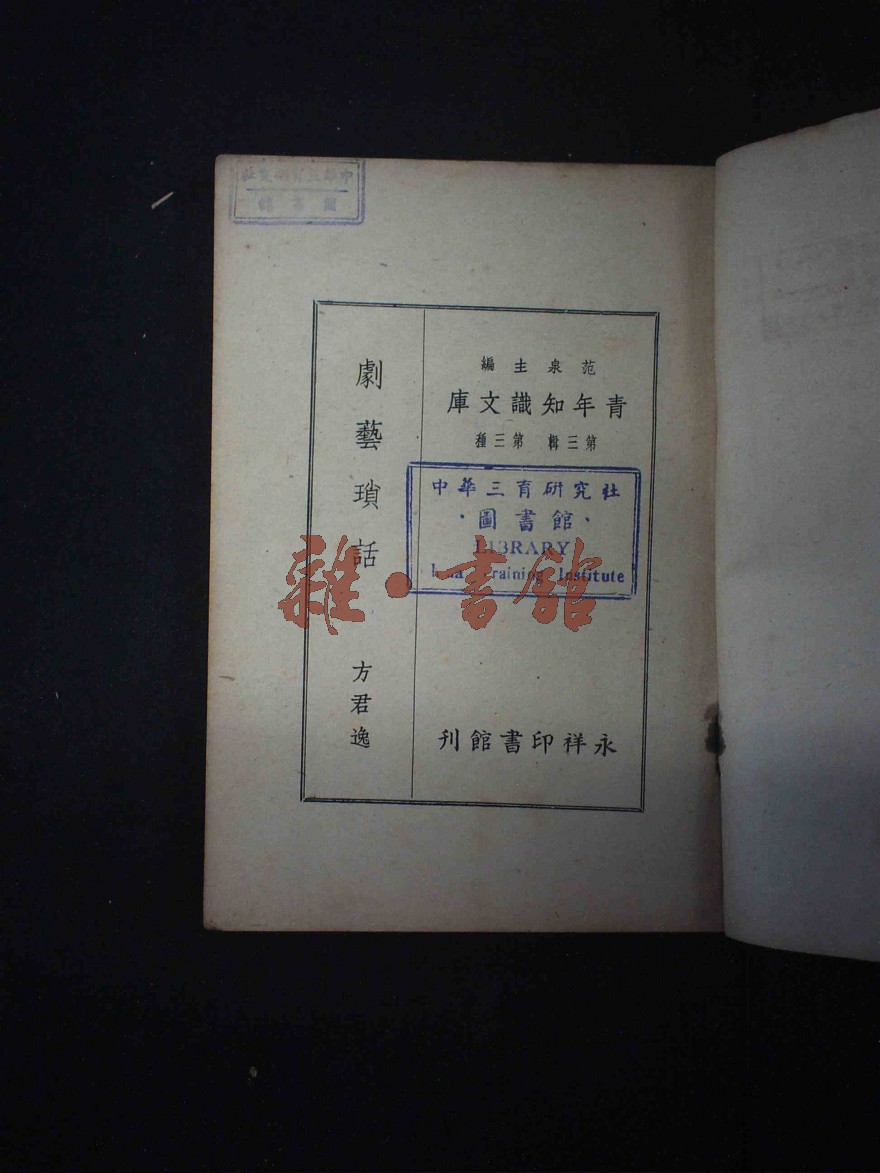 中華三育研究社
圖書館
范泉主編
青年知識文庫
第三輯 第三種
中華三育研究社
·圖書館·
LIBRARY
Training Institute
永祥印書館刊
劇藝瑣話
方君逸
雜·書館